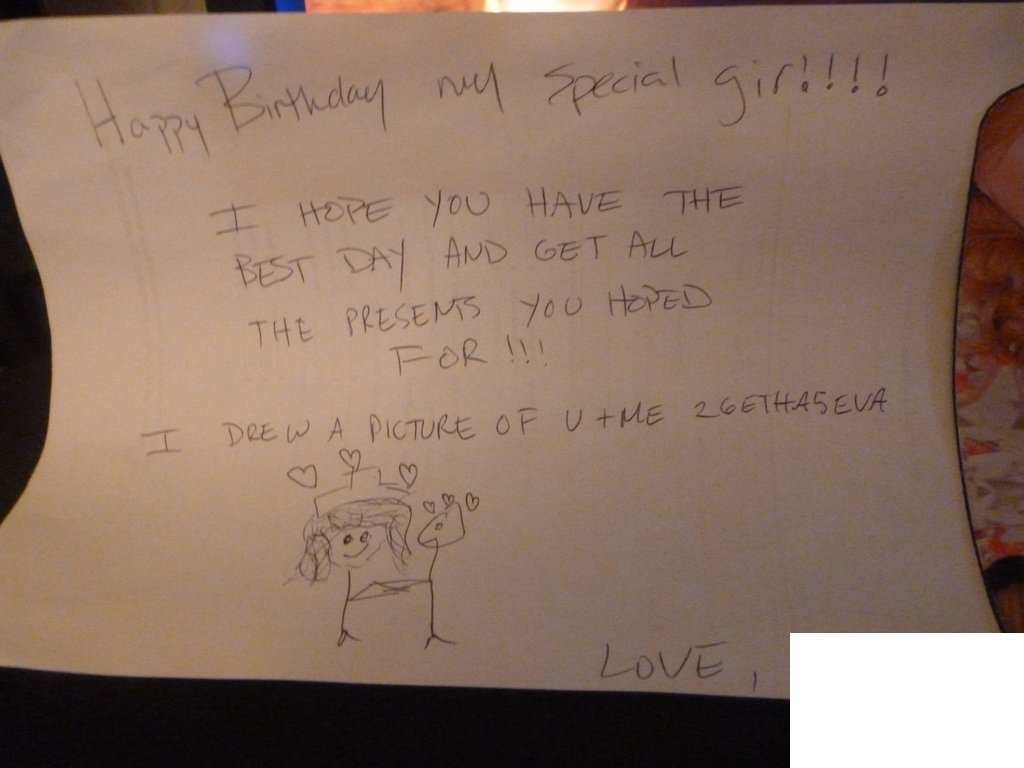 Happy Birthday my special girl!!!!
I HOPE YOU HAVE THE
BEST DAY AND GET ALL
THE PRESENTS YOU HOPED
FOR!!!
I DREW A PICTURE OF U+ME 2GETHA5EVA
LOVE,